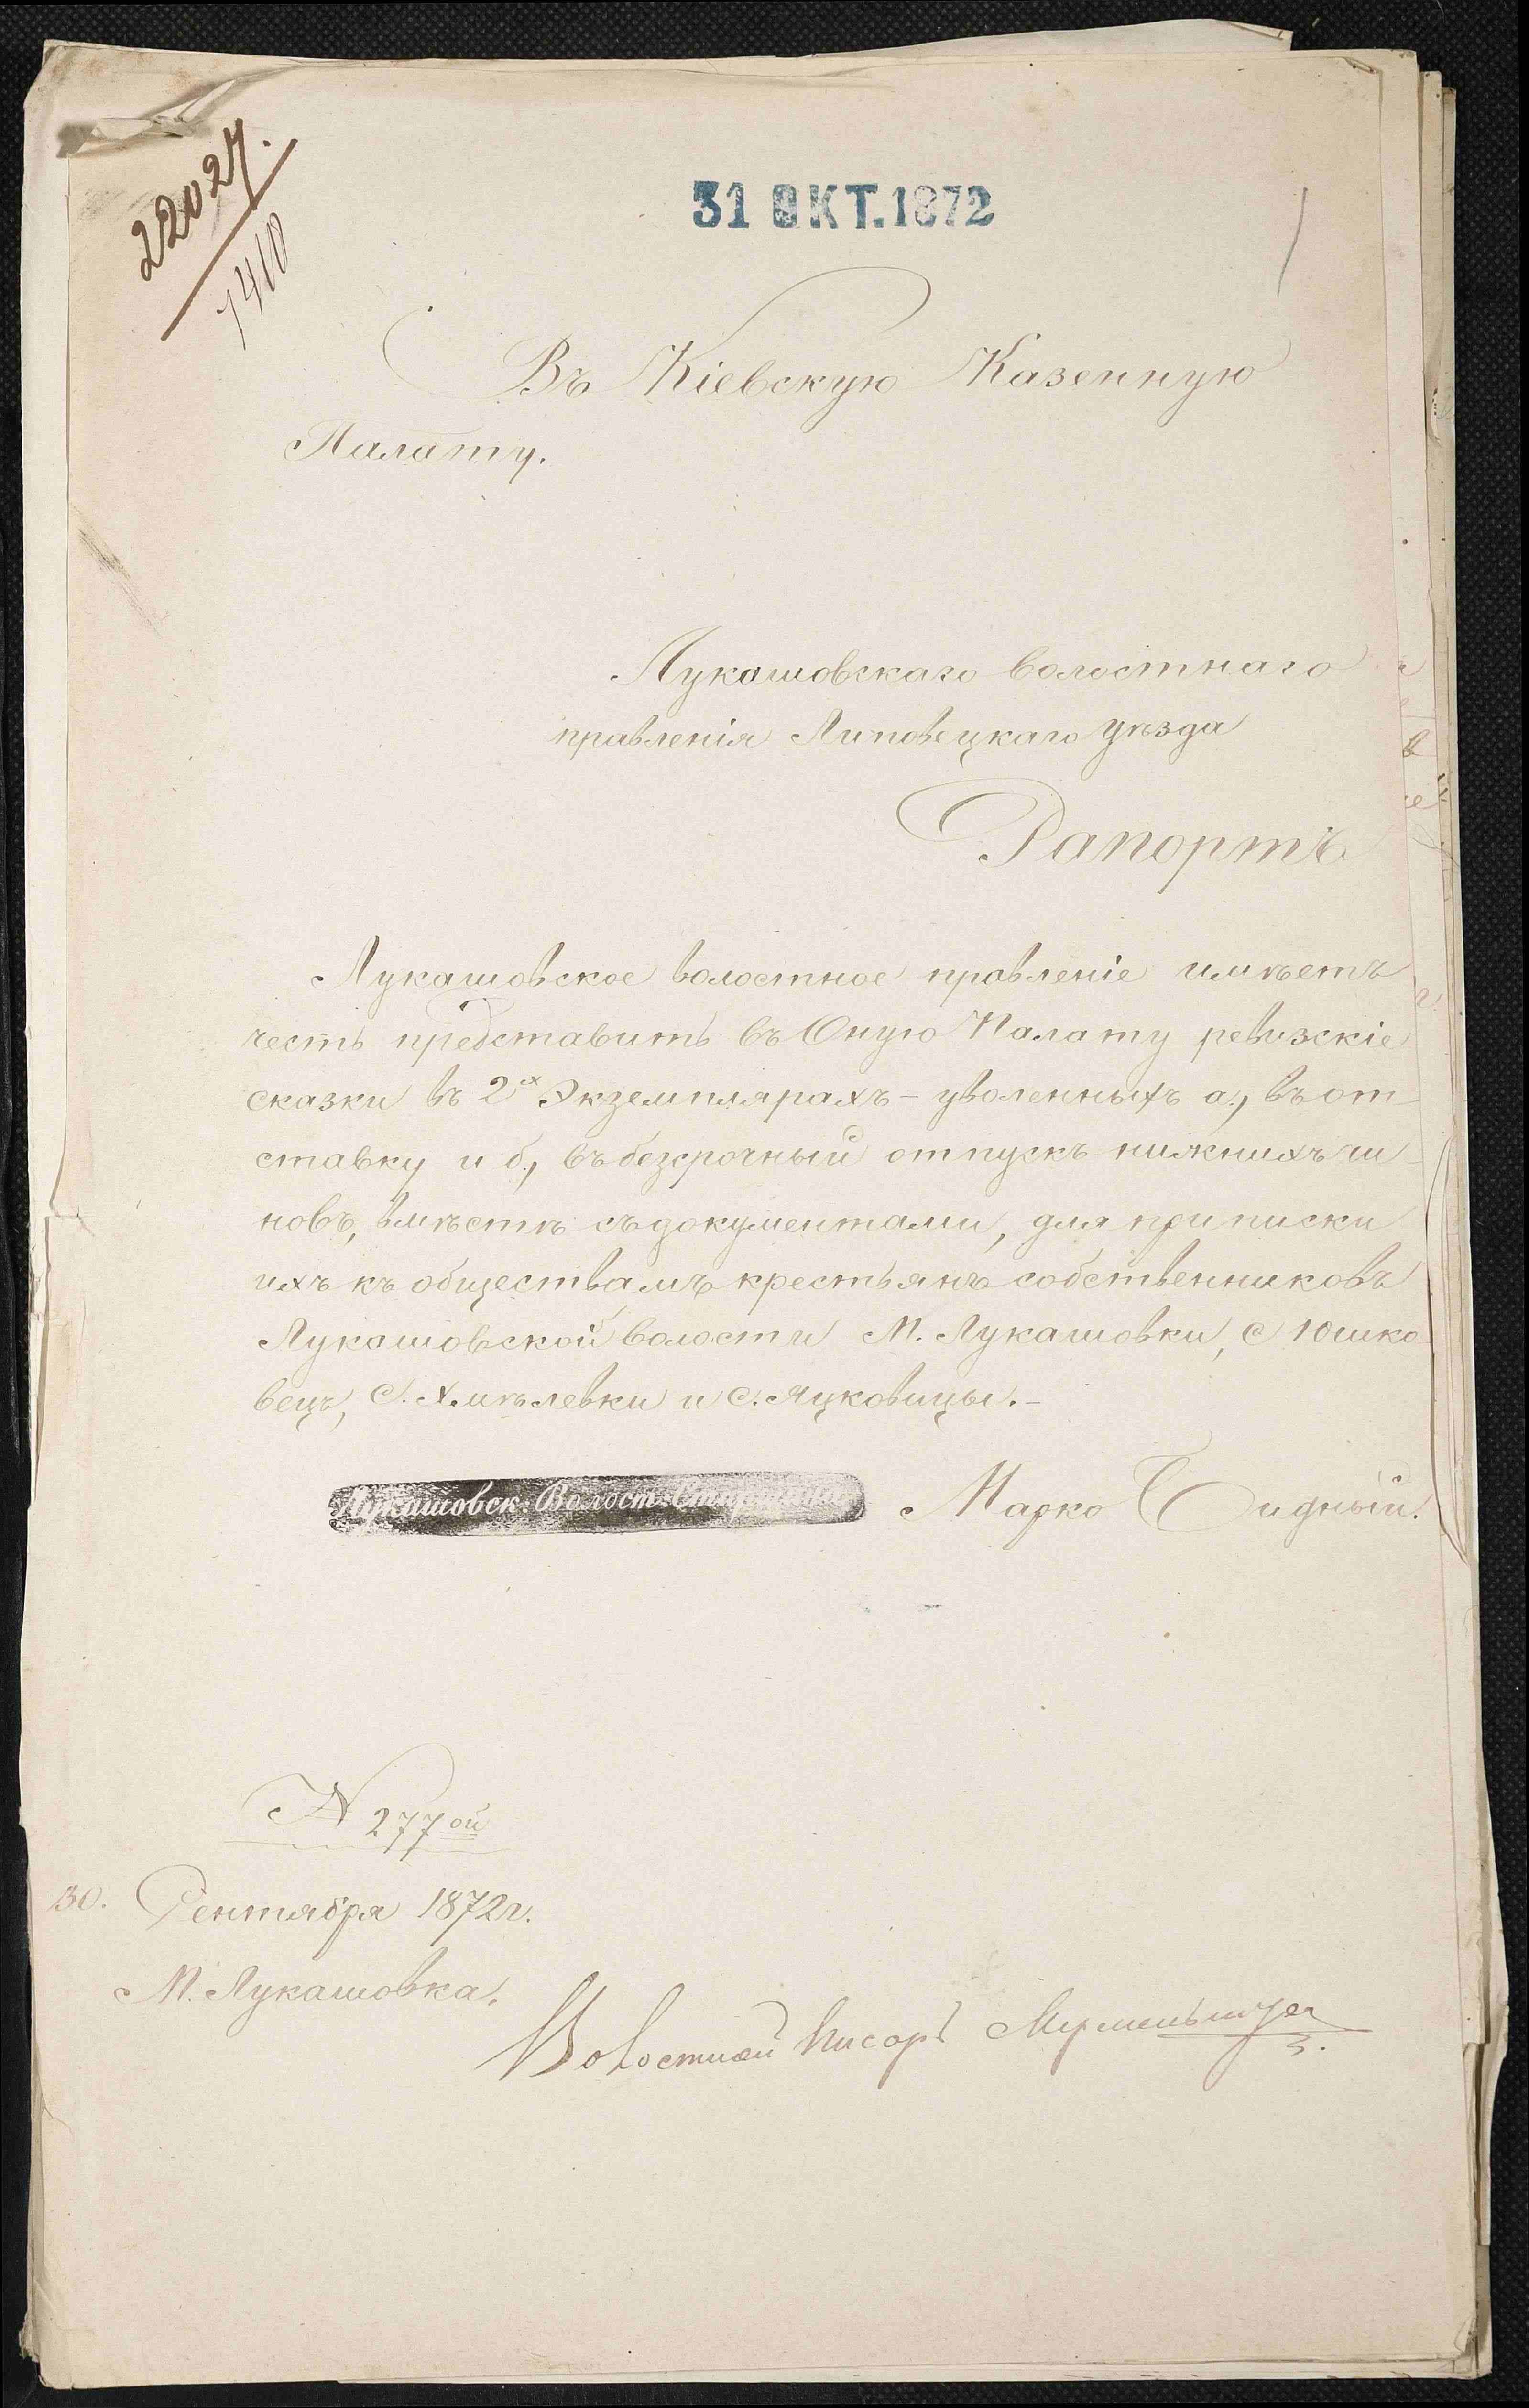 22027.
1410
31 ОКТ.1872
Въ Кіевскую Казенную
Палату.
Лукашовскаго волостнаго
правленія Липовецкаго уѣзда
Рапортъ
Лукашовское волостное правленіе имѣетъ
честь представить въ Оную Палату ревизскіе
сказки въ 2х Экземплярахъ - уволенныхъ а., въ от-
ставку и б., въ безсрочный отпускъ нижнихъ чи-
новъ, вмѣстѣ съ документами, для приписки
ихъ къ обществамъ крестьянъ собственниковъ
Лукашовской волости М. Лукашовки, С Юшко
вецъ, С. Хмѣлевки и С. Яцковицы. -
Лукашовск: Волост: Марко Бидный.
N 277ой
30. Сентября 1872 г.
М. Лукашовка.
Волостной Писарь